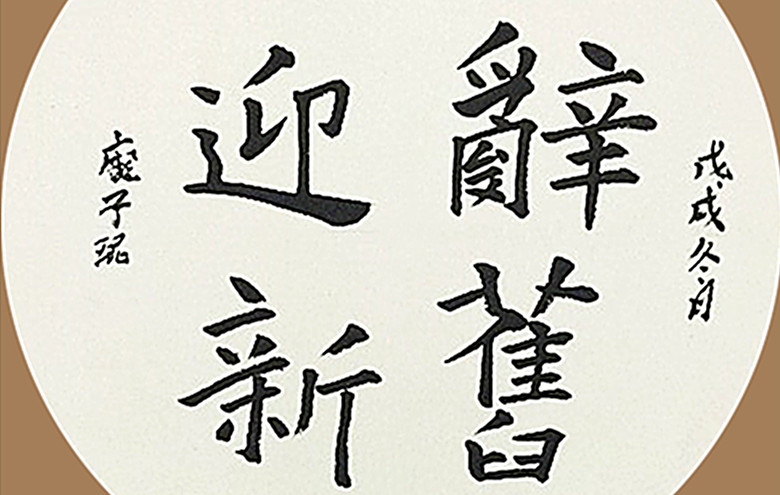 戊戌冬月
辭舊
迎新
子